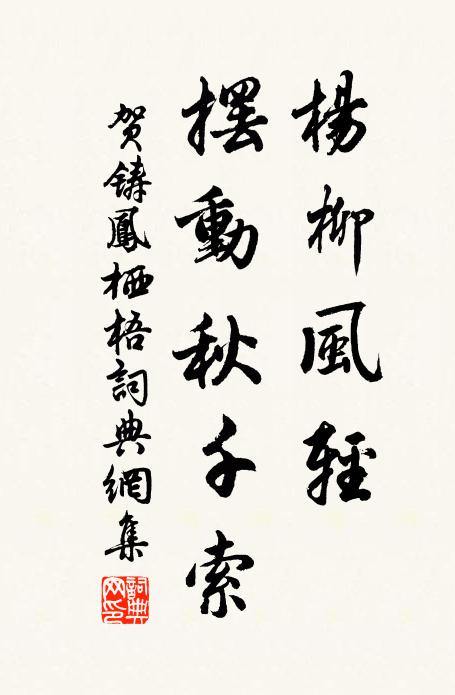 楊柳風輕
擺動秋千索
賀鑄鳳栖梧詞典網集
詞典
网印